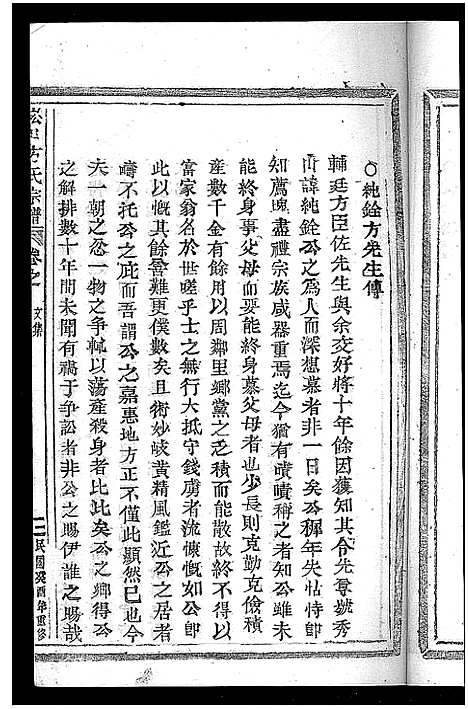 ○純銓方先生傳
輔廷方臣佐先生與余交好將十年餘因獲知其令先尊號秀
山諱純銓公之爲人而深想慕者非一日矣公穉年失怙恃即
知薦塊盡禮宗族咸器重焉迄今猶有嘖嘖稱之者知公雖未
能終身事父母而要能終身慕父母者也少長則克勤克儉積
產數千金有餘用以周鄰里鄉黨之乏積而能散故終不得以
富家翁名於世嗟乎士之無行大抵守錢虜者流慷慨如公即
此以慨其餘善難更僕數矣且術妙岐黄精風鑑近公之居者
疇不托公之庇而吾謂公之嘉惠地方正不僅此顯然已也今
夫一朝之忿一物之爭輒以蕩產殺身者比比矣公之鄉得公
之解排數十年間未聞有禍于爭訟者非公之賜伊誰之賜哉
方氏宗譜 卷之 文集
民國癸酉年重修